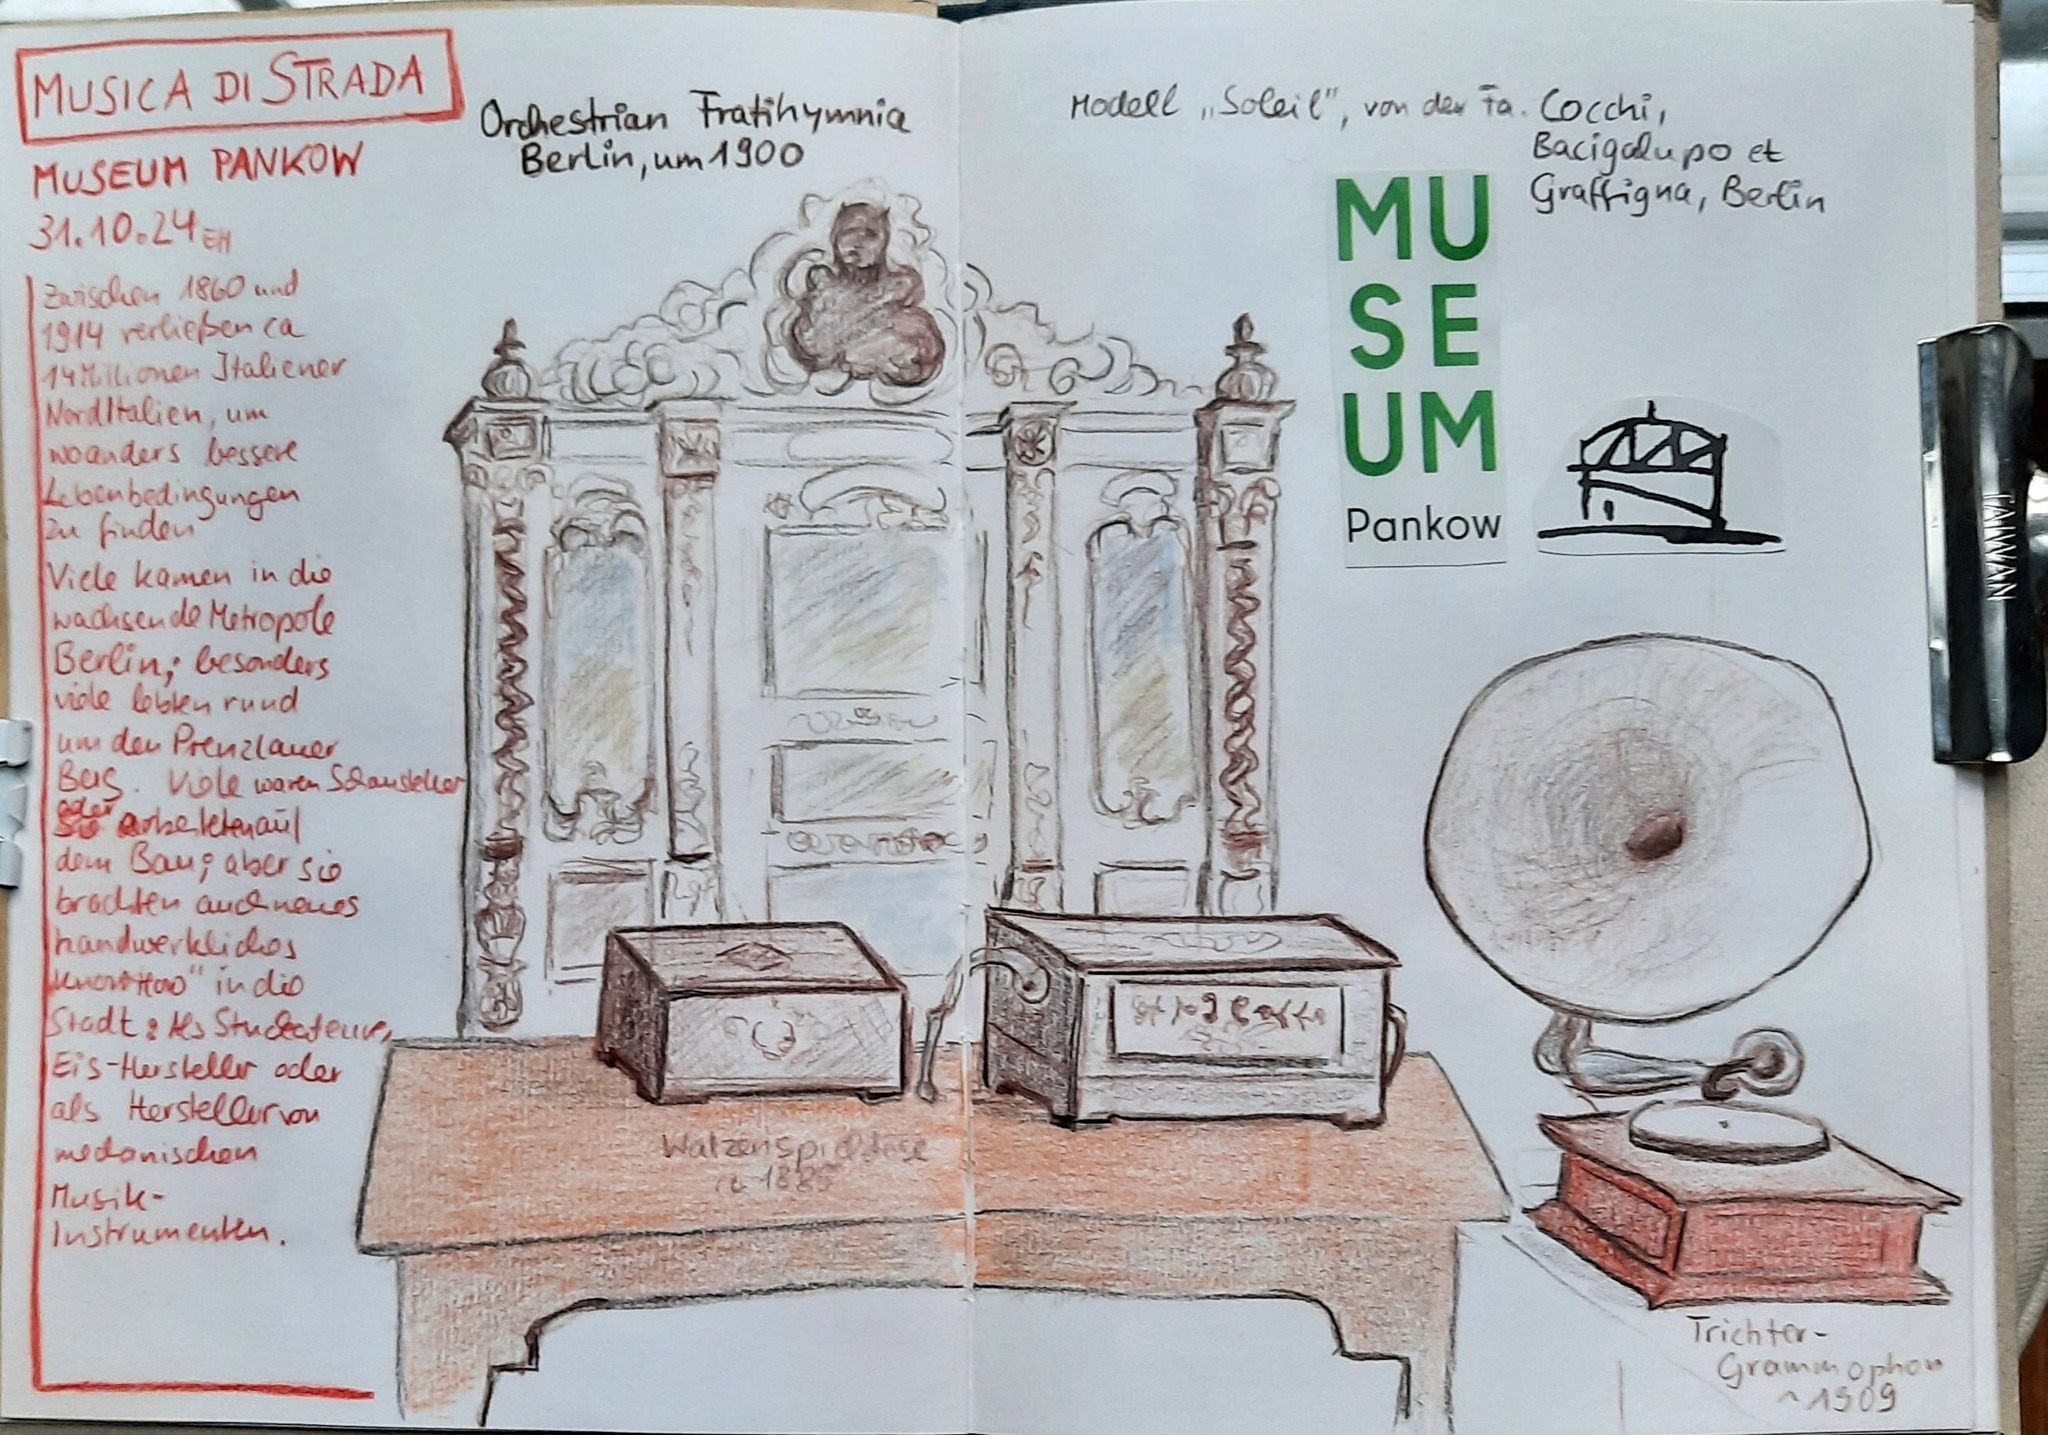 MUSICA DI STRADA
MUSEUM PANKOW
31.10.24 EH
Zwischen 1860 und
1914 verließen ca
14 Millionen Italiener
NordItalien, um
woanders bessere
Lebenbedingungen
zu finden
Viele kamen in die
wachsende Metropole
Berlin; besonders
viele lebten rund
um den Prenzlauer
Berg. Viele waren Schausteller
oder
arbeiteten auf
dem Bau; aber sie
brachten auch neues
handwerkliches
"KnowHow" in die
Stadt: Als Stuckateure,
Eis-Hersteller oder
als Hersteller von
mechanischen
Musik-
Instrumenten.
Orchestrian Fratihymnia
Berlin, um 1900
Modell „Soleil", von der Fa. Cocchi,
Bacigalupo et
Graffigna, Berlin
MU
SE
UM
Pankow
Walzenspieldose
1885
Trichter-
Grammophon
~1909
TAIWAN